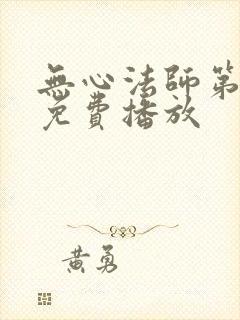 無心法師第
免費播放
黃勇